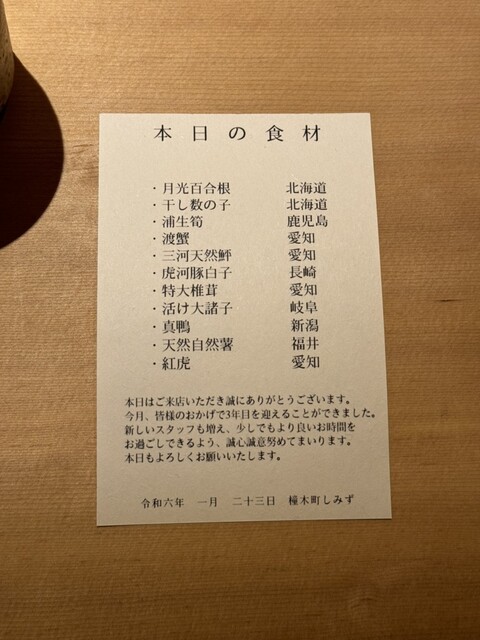 本日の食材
・月光百合根 北海道
・干し数の子 北海道
・浦生筍 鹿児島
・渡蟹 愛知
・三河天然鮃 愛知
・虎河豚白子 長崎
・特大椎茸 愛知
・活け大諸子 岐阜
・真鴨 新潟
・天然自然薯 福井
・紅虎 愛知
本日はご来店いただき誠にありがとうございます。
今月、皆様のおかげで3年目を迎えることができました。
新しいスタッフも増え、少しでもより良いお時間を
お過ごしできるよう、誠心誠意努めてまいります。
本日もよろしくお願いいたします。
令和六年 一月 二十三日 橦木町しみず